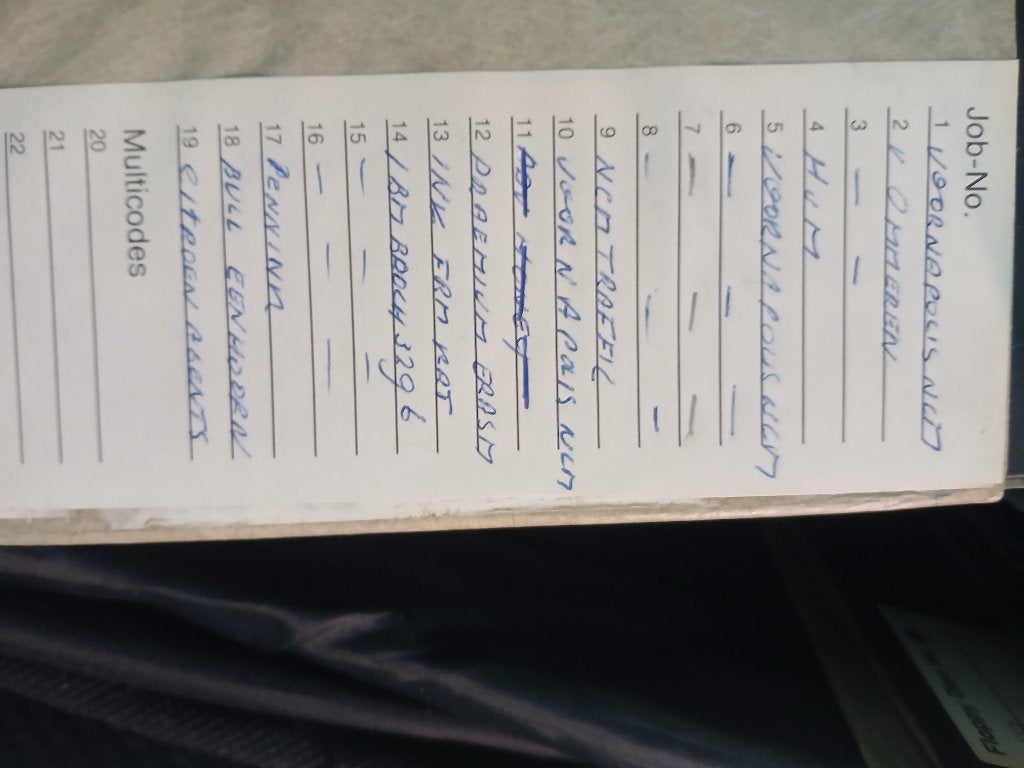 Job-No.
1 VOORNAPOLIS NCM
2 V OMMEREN
3 — —
4 HUM
5 VOORNAPOLIS NCM
6 — — —
7 — — —
8 — — —
9 NCM TRAFFIC
10 VOORNAPOLIS NCM
11
12 PRAEMIUM ERASM
13 INK FRM
14 IBM BROCH 3296
15 — — —
16 — — —
17
18 BULL EENHOORN
19 CITROEN AGENTS
Multicodes
20
21
22
Floppy